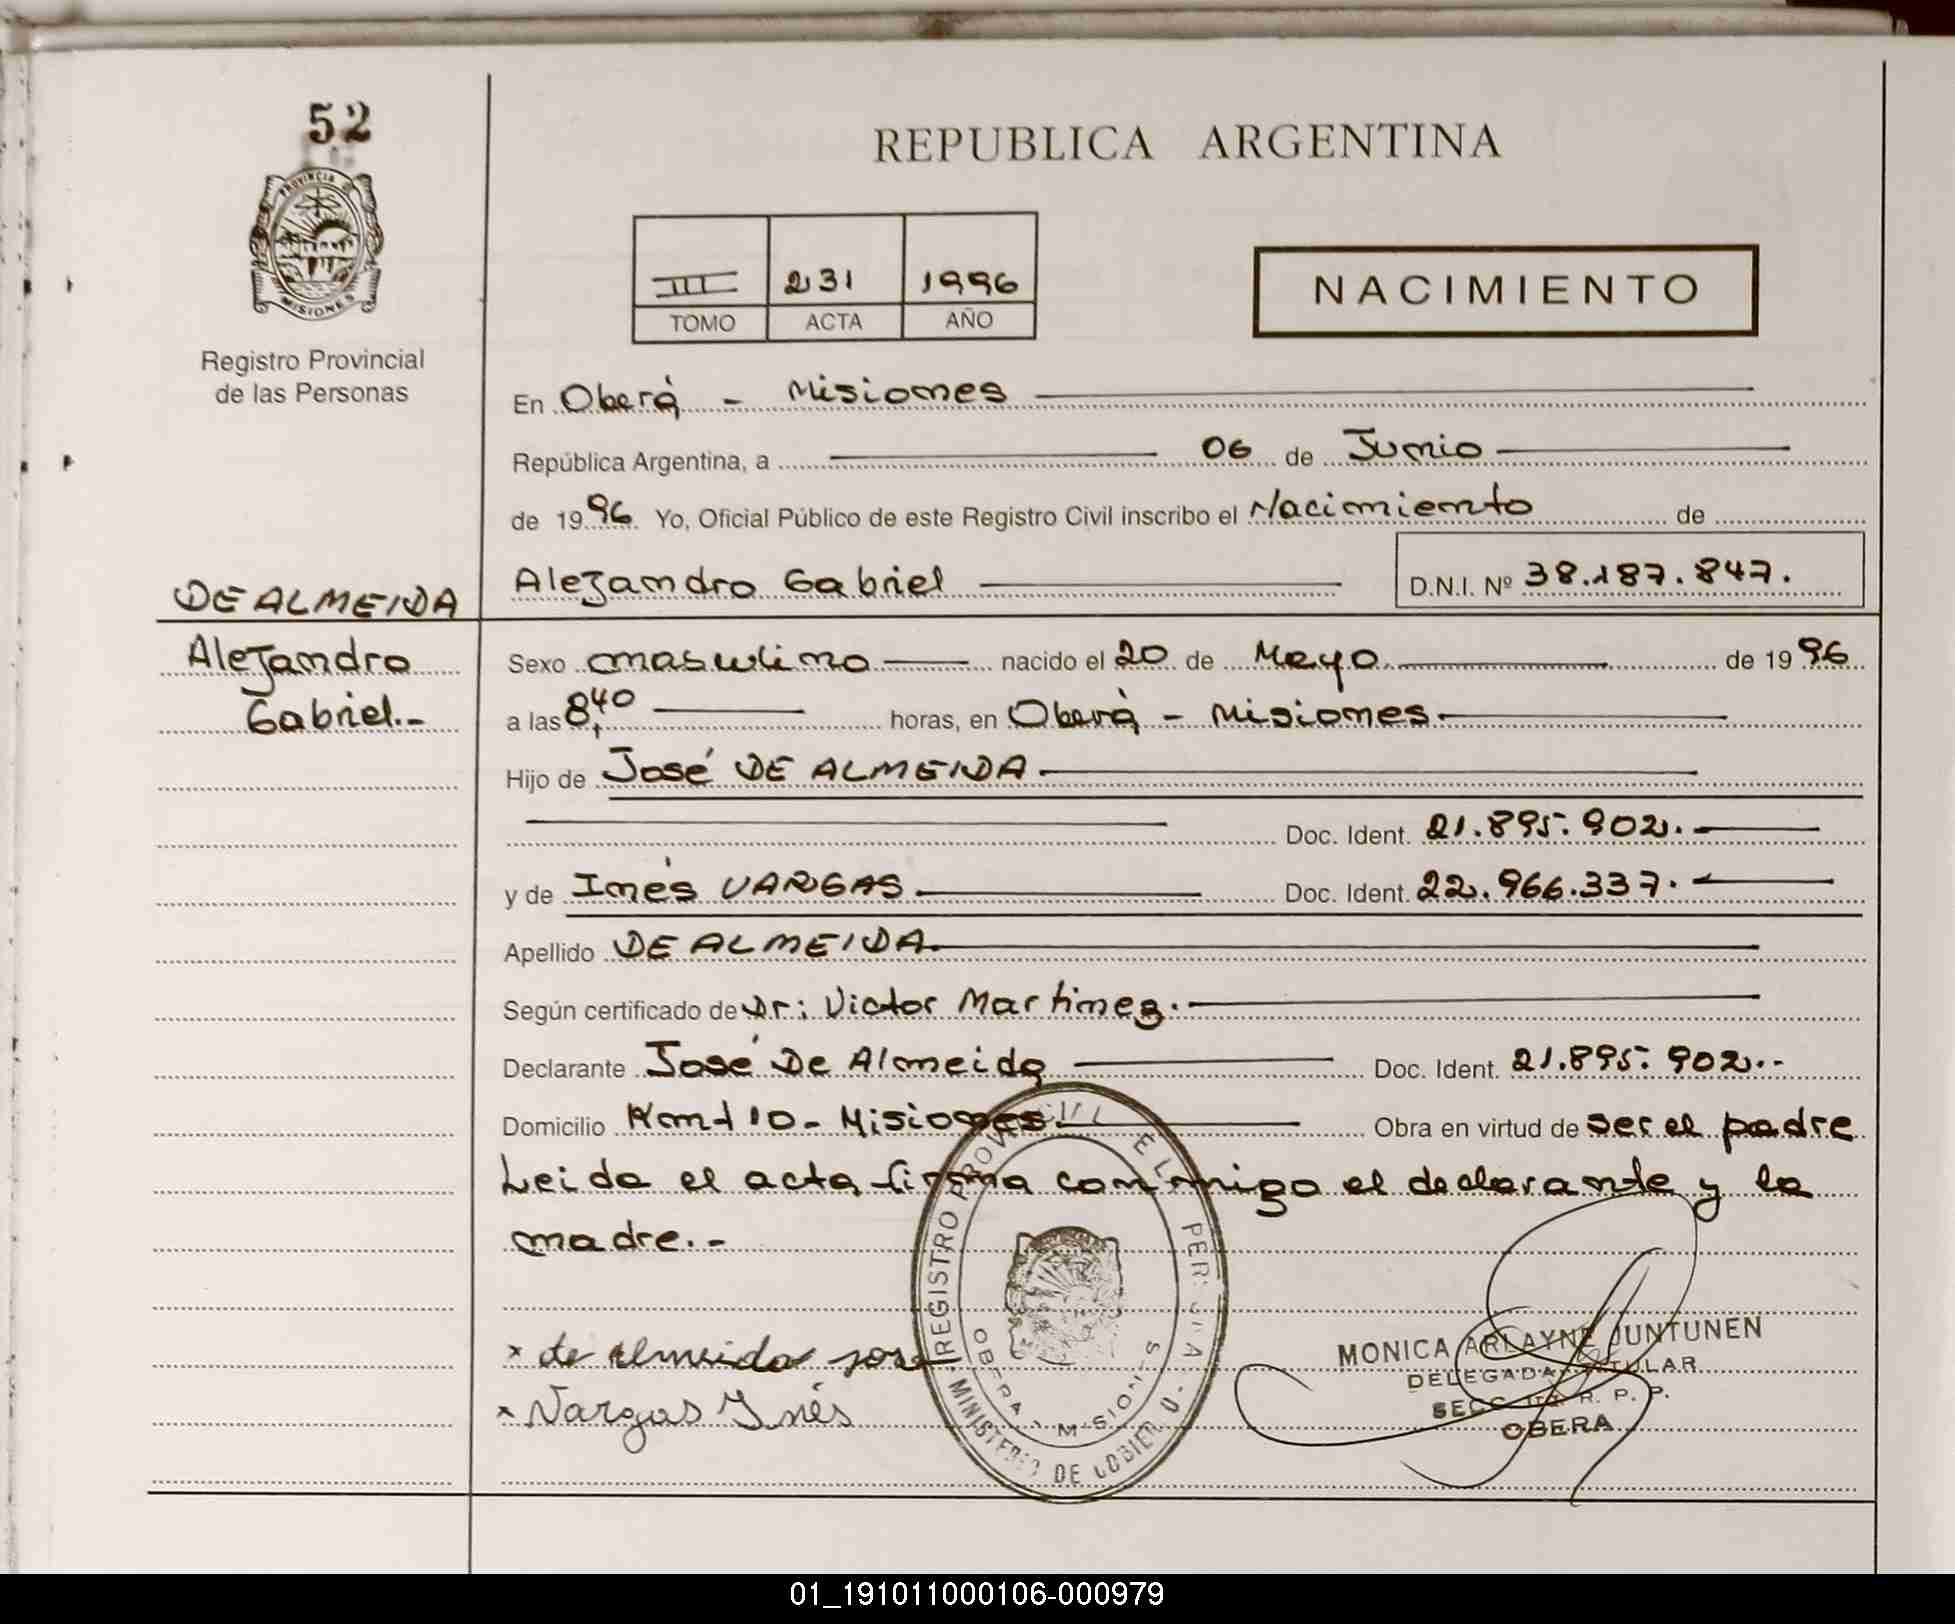 52
PROVINCIA DE
MISIONES
Registro Provincial
de las Personas
REPUBLICA ARGENTINA
III 231 1996
TOMO ACTA AÑO
NACIMIENTO
En Oberá - Misiones
República Argentina, a 06 de Junio
de 1996 Yo, Oficial Público de este Registro Civil inscribo el Nacimiento de
Alejandro Gabriel D.N.I. Nº 38.187.847.
DE ALMEIDA
Alejandro
Gabriel.-
Sexo masculino nacido el 20 de Mayo de 1996
a las 8,40 horas, en Oberá - Misiones
Hijo de José DE ALMEIDA
Doc. Ident. 21.895.902.
y de Inés VARGAS Doc. Ident. 22.966.337.
Apellido DE ALMEIDA.
Según certificado de Dr: Victor Martinez.
Declarante José De Almeida Doc. Ident. 21.895.902.-
Domicilio Km 10 - Misiones. Obra en virtud de ser el padre
Leida el acta firma conmigo el declarante y la
madre.-
x de almeida jose
x Vargas Inés
REGISTRO PROVINCIAL DE LAS PERSONAS
OBERA MISIONES
MINISTERIO DE GOBIERNO
MONICA ARLAYNE JUNTUNEN
DELEGADA TITULAR
SECC. R. P. P.
OBERA
01_191011000106-000979